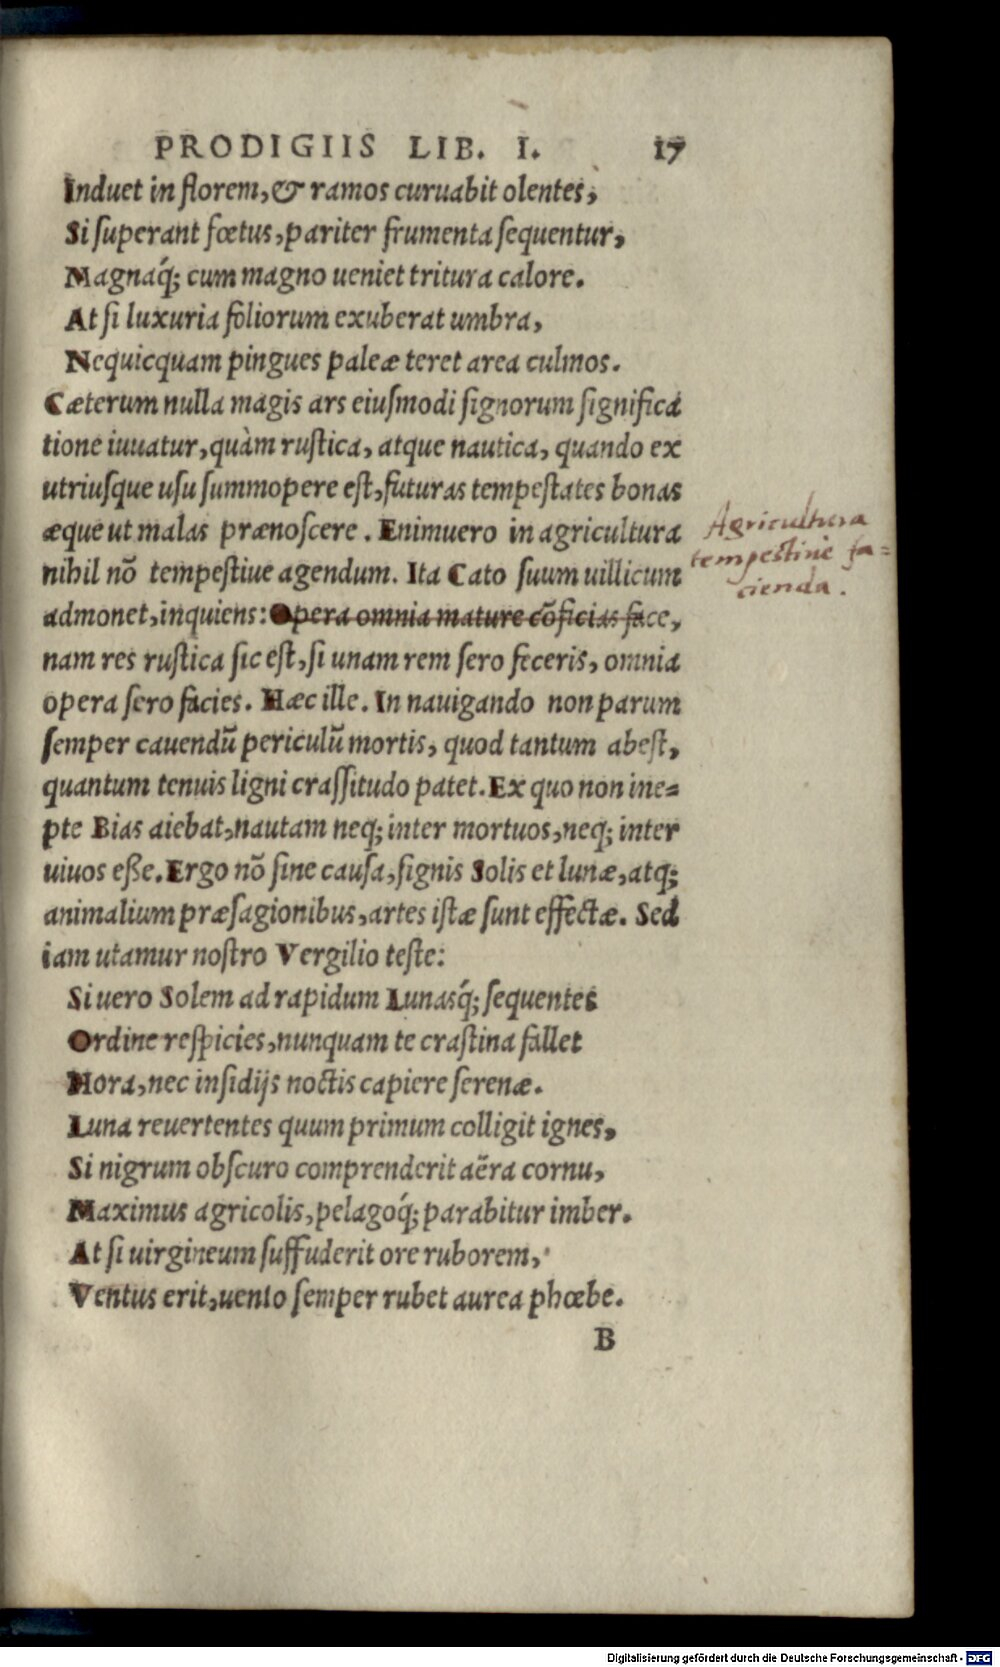 PRODIGIIS LIB. I. 17
Induet in florem, & ramos curuabit olentes,
Si superant fœtus, pariter frumenta sequentur,
Magnaq́; cum magno ueniet tritura calore.
At si luxuria foliorum exuberat umbra,
Nequicquam pingues paleæ teret area culmos.
Cæterum nulla magis ars eiusmodi signorum significa
tione iuuatur, quàm rustica, atque nautica, quando ex
utriusque usu summopere est, futuras tempestates bonas
æque ut malas prænoscere. Enimuero in agricultura
nihil nõ tempestiue agendum. Ita Cato suum uillicum
admonet, inquiens: Opera omnia mature cõficias face,
nam res rustica sic est, si unam rem sero feceris, omnia
opera sero facies. Hæc ille. In nauigando non parum
semper cauendũ periculũ mortis, quod tantum abest,
quantum tenuis ligni crassitudo patet. Ex quo non ine-
pte Bias aiebat, nautam neq; inter mortuos, neq; inter
uiuos eße. Ergo nõ sine causa, signis Solis et lunæ, atq;
animalium præsagionibus, artes istæ sunt effectæ. Sed
iam utamur nostro Vergilio teste:
Si uero Solem ad rapidum Lunasq́; sequentes
Ordine respicies, nunquam te crastina fallet
Hora, nec insidijs noctis capiere serenæ.
Luna reuertentes quum primum colligit ignes,
Si nigrum obscuro comprenderit aëra cornu,
Maximus agricolis, pelagoq́; parabitur imber.
At si uirgineum suffuderit ore ruborem,
Ventus erit, uento semper rubet aurea phœbe.
B
Agricultura
tempestiuè fa=
cienda.
Digitalisierung gefördert durch die Deutsche Forschungsgemeinschaft - DFG